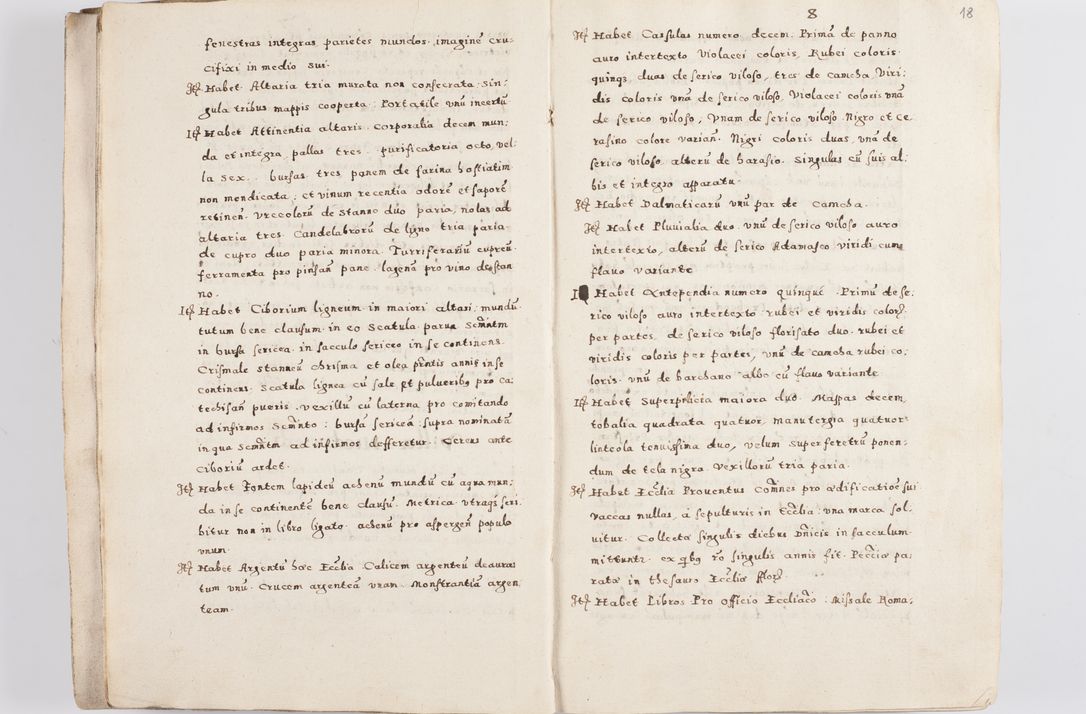 fenestras integras parietes mundos. imaginẽ cru-
cifixi in medio sui.
Itȩ Habet Altaria tria murata non consecrata: Sin:
gula tribus mappis cooperta. Portatile vnũ incertũ
Itȩ Habet Attinentia altaris. Corporalia decem mun:
da et integra, pallas tres. purificatoria octo, vel-
la sex. bursas tres panem de farina hostiatim
non mendicata; et vinum recentia odorẽ et saporẽ
retinen. Vrceolorũ de Stanno duo paria, nolas ad
altaria tres. Candelabrorũ de ligno tria paria.
de cupro duo paria minora. Turriferariũ cupreũ.
ferramenta pro pinsañ pane. lagenã pro vino de stan
no.
Itȩ Habet Ciborium ligneum in maiori altari. mundũ
tutum bene clausum. in eo Scatula parua Scm̃ntm
in bursa sericea. in sacculo sericeo in se continens.
Crismale stanneũ chrisma et olea pr̃ntis anni in se
continens. Scatula lignea cũ sale et pulueribȩ pro ca:
techisañ pueris. vexillũ cũ laterna pro comitando
ad infirmos Scm̃nto: bursã sericeã. supra nominatã
in qua Scm̃ntm ad infirmos defferetur. Cereus ante
Ciboriũ ardet.
Itȩ Habet Fontem lapideũ aehenũ mundũ cũ aqua mun:
da in se continentẽ bene clausũ. Metrica vtraqȝ scri
bitur non in libro ligato. aehenũ pro aspergeñ populo
vnum.
Itȩ Habet Argentũ hæc Ecc̃lia Calicem argenteũ deaura
tum vnũ. Crucem argenteã vnam. Monstrantiã argen
team.
8
18
Itȩ Habet Cassulas numero decem. Primã de panno
auro intertexto Violacei coloris, Rubei coloris.
quinqȝ, duas de serico viloso, tres de camcha. Viri:
dis coloris vnã de serico viloso, Violacei coloris vnã
de serico viloso; Vnam de serico viloso. Nigro et Ce
rasino colore variañ. Nigri coloris duas, vnã de
serico viloso, alterũ de harasio. Singulas cũ suis al:
bis et integro apparatu.
Itȩ Habet Dalmaticarũ vnũ par de camcha.
Itȩ Habet Pluuialia duo. vnũ de serico viloso auro
intertexto, alterũ de serico Adamasco viridi cum
flauo variante
I Habet Antependia numero quinque. Primũ de se:
rico viloso auro intertexto. rubei et viridis color̃.
per partes. de serico viloso florisato duo. rubei et
viridis coloris per partes, vnũ de camcha rubei co:
loris. vnũ de harchano albo cũ flauo variante.
Itȩ Habet Superpilicia maiora duo. Mappas decem
tobalia quadrata quatuor, manutergia quatuor.
linteola tenuissima duo, velum super feretrũ ponen:
dum de tela nigra. Vexillorũ tria paria.
Itȩ Habet Ecc̃lia Prouentus Com̃nes pro ædificatioẽ sui
vaccas nullas, à sepulturis in Ecc̃lia: vna marca sol:
uitur. Collecta singulis diebus Dñicis in sacculum.
mittuntr. ex qbȩ rõ singulis annis fit. Peccia pa:
rata in thesauro Ecc̃liæ flor̃.
Itȩ Habet Libros Pro officio Eccliac̃o. Missale Roma: